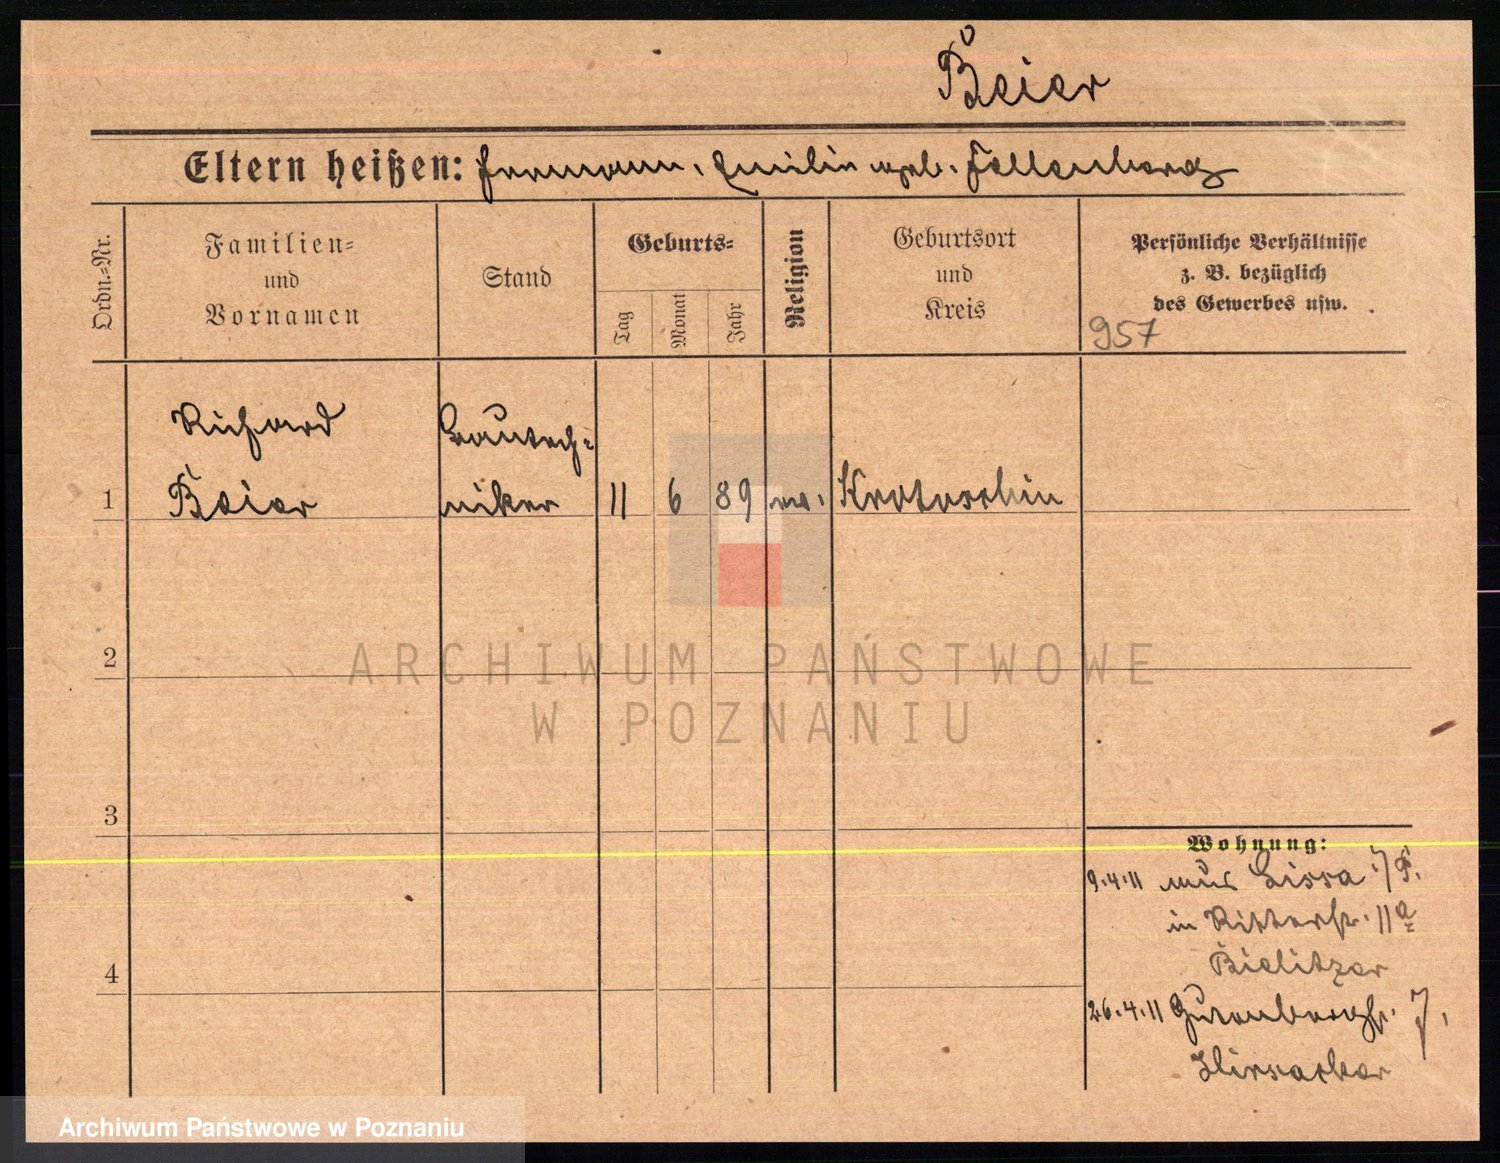 Beier
Eltern heißen: Hermann, Emilie geb. Fallenberg
Ordn.-Nr.
Familien-
und
Vornamen
Stand
Geburts-
Tag
Monat
Jahr
Religion
Geburtsort
und
Kreis
Persönliche Verhältnisse
z. B. bezüglich
des Gewerbes usw.
957
Richard
Bautech-
1 Beier niker 11 6 89 ev. Krotoschin
2
ARCHIWUM PAŃSTWOWE
W POZNANIU
3
Wohnung:
9.4.11 aus Lissa i/P.
in Ritterstr. 11a
Bielitzer
4
26.4.11 Gutenbergstr. 7.
Archiwum Państwowe w Poznaniu